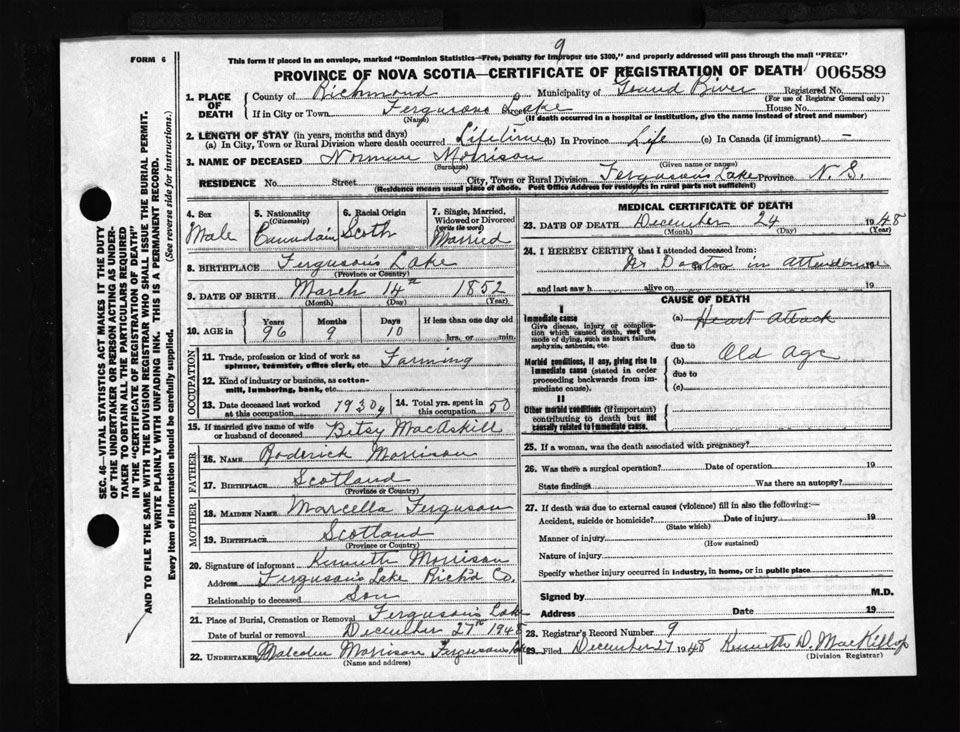 9
FORM 6
This form if placed in an envelope, marked "Dominion Statistics—Free, penalty for improper use $300," and properly addressed will pass through the mail "FREE"
PROVINCE OF NOVA SCOTIA—CERTIFICATE OF REGISTRATION OF DEATH 006589
1. PLACE OF DEATH
County of Richmond Municipality of Grand River Registered No.
(For use of Registrar General only)
If in City or Town Fergusons Lake House No.
(Name) (If death occurred in a hospital or institution, give the name instead of street and number)
2. LENGTH OF STAY (in years, months and days)
(a) In City, Town or Rural Division where death occurred Lifetime (b) In Province Life (c) In Canada (if immigrant) —
3. NAME OF DECEASED Norman Morrison
(Surname) (Given name or names)
RESIDENCE No. Street City, Town or Rural Division Ferguson's Lake Province N. S.
(Residence means usual place of abode. Post Office Address for residents in rural parts not sufficient)
4. Sex Male
5. Nationality (Citizenship) Canadain
6. Racial Origin Scoth
7. Single, Married, Widowed or Divorced (write the word) Married
8. BIRTHPLACE Ferguson's Lake
(Province or Country)
9. DATE OF BIRTH March 14th 1852
(Month) (Day) (Year)
10. AGE in Years Months Days If less than one day old
96 9 10 hrs. or min.
OCCUPATION
11. Trade, profession or kind of work as spinner, teamster, office clerk, etc. Farming
12. Kind of industry or business, as cotton-mill, lumbering, bank, etc.
13. Date deceased last worked at this occupation 1930
14. Total yrs. spent in this occupation 50
15. If married give name of wife or husband of deceased Betsy MacAskill
FATHER
16. NAME Roderick Morrison
17. BIRTHPLACE Scotland
(Province or Country)
MOTHER
18. MAIDEN NAME Marcella Ferguson
19. BIRTHPLACE Scotland
(Province or Country)
20. Signature of informant Kenneth Morrison
Address Ferguson's Lake Rich'd Co.
Relationship to deceased Son
21. Place of Burial, Cremation or Removal Ferguson's Lake
Date of burial or removal December 27th 1948
22. UNDERTAKER Malcolm Morrison Fergusons Lake
(Name and address)
MEDICAL CERTIFICATE OF DEATH
23. DATE OF DEATH December 24 1948
(Month) (Day) (Year)
24. I HEREBY CERTIFY that I attended deceased from:
No Doctor in attendance
and last saw h alive on 19
CAUSE OF DEATH
I
Immediate cause
Give disease, injury or complication which caused death, not the mode of dying, such as heart failure, asphyxia, asthenia, etc.
(a) Heart Attack
due to
Morbid conditions, if any, giving rise to immediate cause (stated in order proceeding backwards from immediate cause).
(b) Old Age
due to
(c)
II
Other morbid conditions (if important) contributing to death but not causally related to immediate cause.
25. If a woman, was the death associated with pregnancy?
26. Was there a surgical operation? Date of operation 19
State findings Was there an autopsy?
27. If death was due to external causes (violence) fill in also the following:—
Accident, suicide or homicide? Date of injury 19
(State which)
Manner of injury
(How sustained)
Nature of injury
Specify whether injury occurred in industry, in home, or in public place
Signed by M.D.
Address Date 19
28. Registrar's Record Number 9
29. Filed December 27 1948 Kenneth D. MacKillop
(Division Registrar)
SEC. 46—VITAL STATISTICS ACT MAKES IT THE DUTY
OF THE UNDERTAKER OR PERSON ACTING AS UNDER-
TAKER TO OBTAIN ALL THE PARTICULARS REQUIRED
IN THE "CERTIFICATE OF REGISTRATION OF DEATH"
AND TO FILE THE SAME WITH THE DIVISION REGISTRAR WHO SHALL ISSUE THE BURIAL PERMIT.
WRITE PLAINLY WITH UNFADING INK. THIS IS A PERMANENT RECORD.
Every item of Information should be carefully supplied. (See reverse side for instructions.)